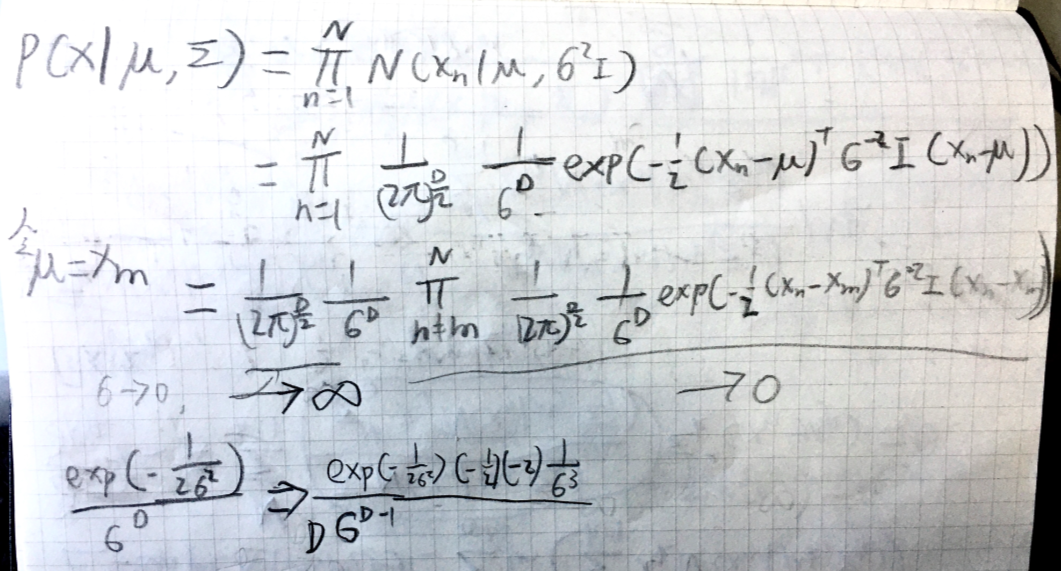 P(X|μ, Σ) = ∏_{n=1}^{N} N(x_n|μ, σ²I)
= ∏_{n=1}^{N} 1/(2π)^{D/2} 1/σ^D exp(-1/2 (x_n-μ)^T σ^{-2} I (x_n-μ))
令μ=x_m = 1/(2π)^{D/2} 1/σ^D ∏_{n≠m}^{N} 1/(2π)^{D/2} 1/σ^D exp(-1/2 (x_n-x_m)^T σ^{-2} I (x_n-x_m))
σ→0, →∞ →0
exp(-1/(2σ²))/σ^D ⇒ exp(-1/(2σ²)) (-1/2)(-2) 1/σ³ / D σ^{D-1}